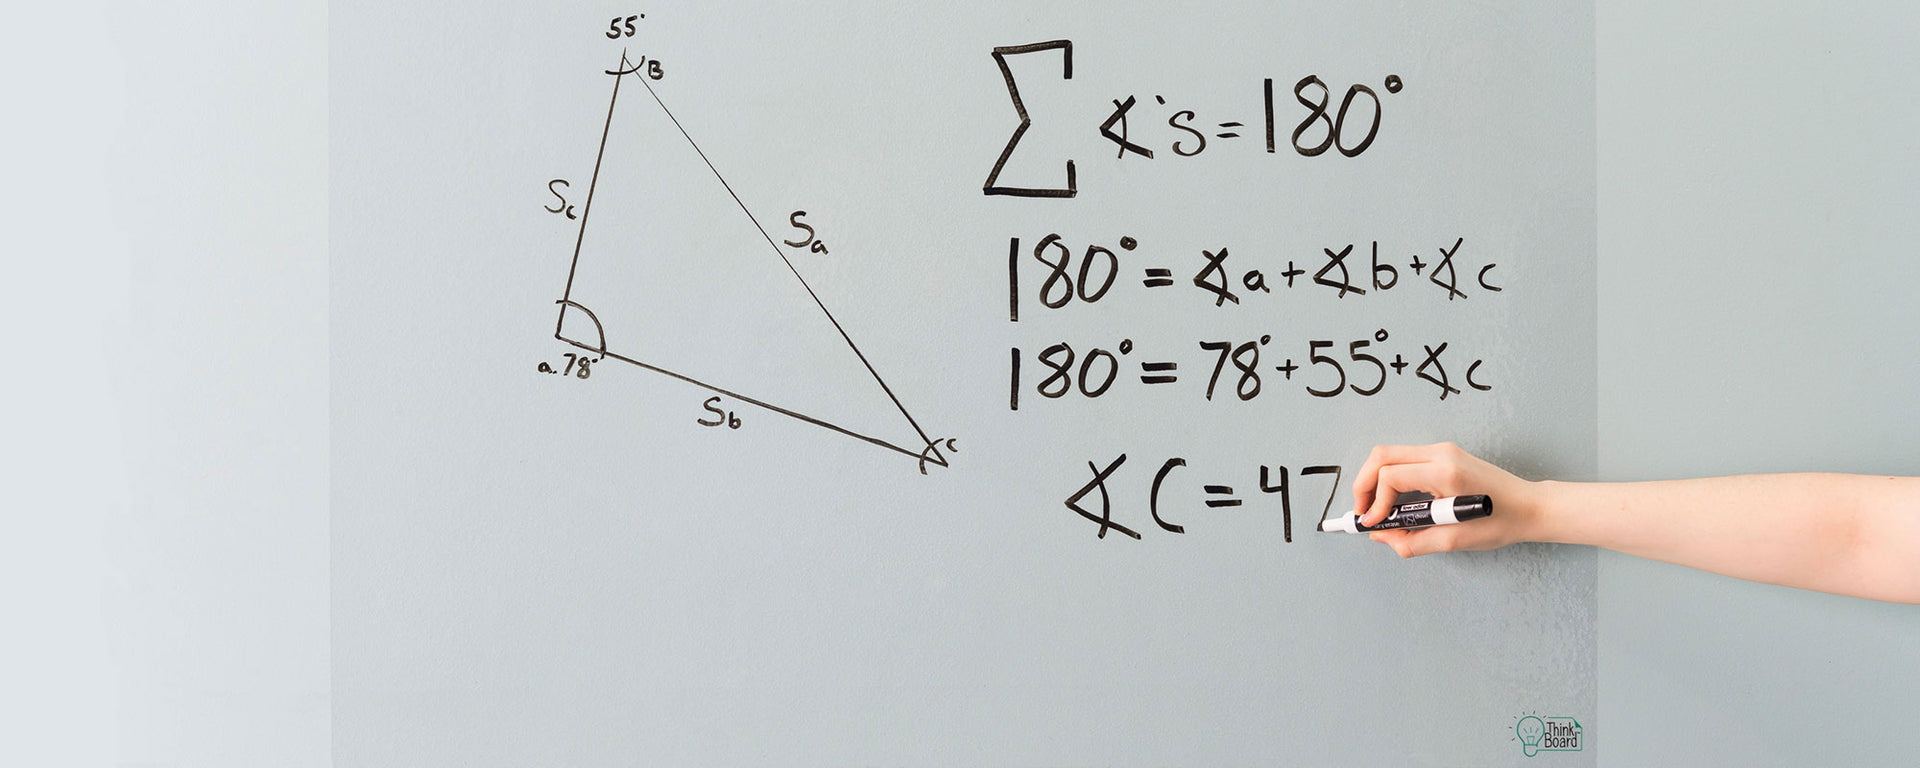 55°
B
Sc
Sa
a. 78°
Sb
c
∑ ∡'s = 180°
180° = ∡a + ∡b + ∡c
180° = 78° + 55° + ∡c
∡C = 47
low odor
Think
Board